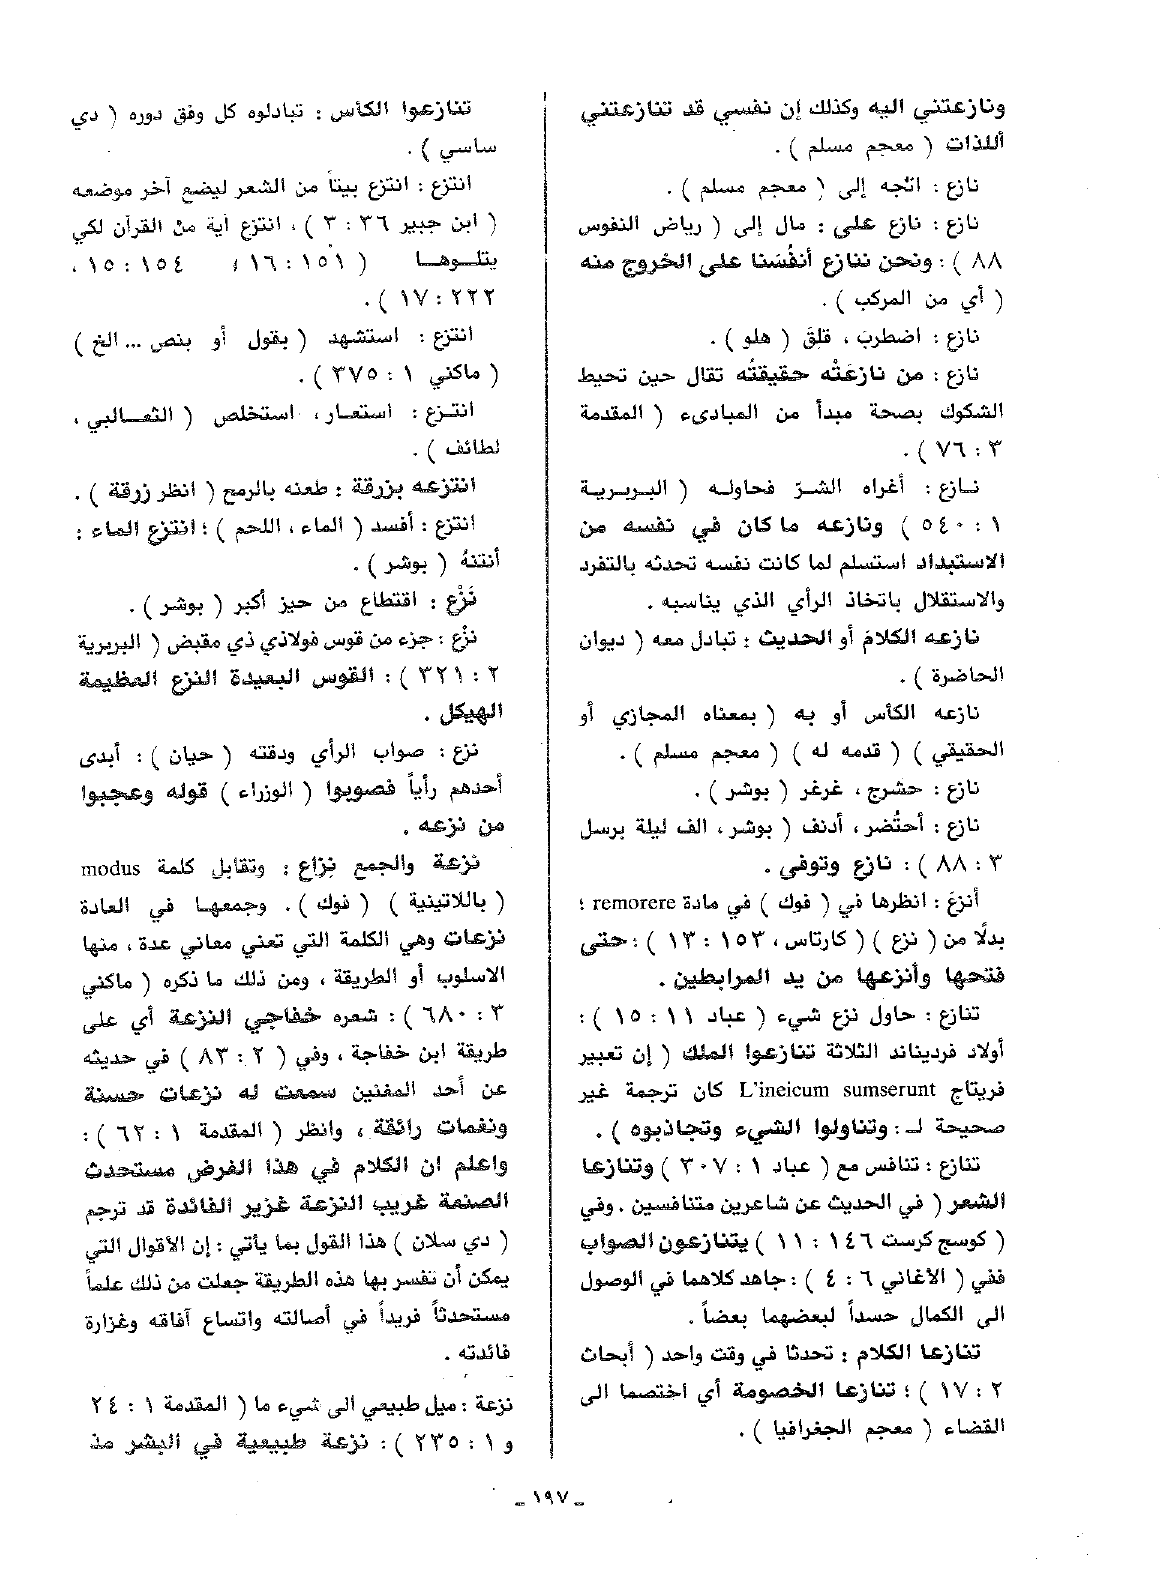 ونازعتني اليه وكذلك إن نفسي قد تنازعتني
أللذات ( معجم مسلم ) .
نازع : اتّجه إلى ( معجم مسلم ) .
نازع : نازع على : مال إلى ( رياض النفوس
٨٨ ) : ونحن ننازع أنفُسَنا على الخروج منه
( أي من المركب ) .
نازع : اضطربَ ، قلِقَ ( هلو ) .
نازع : من نازعَتْه حقيقتُه تقال حين تحيط
الشكوك بصحة مبدأ من المبادىء ( المقدمة
٣ : ٧٦ ) .
نازع : أغراه الشرّ فحاوله ( البربرية
١ : ٥٤٠ ) ونازعه ما كان في نفسه من
الاستبداد استسلم لما كانت نفسه تحدثه بالتفرد
والاستقلال باتخاذ الرأي الذي يناسبه .
نازعه الكلامَ أو الحديث : تبادل معه ( ديوان
الحاضرة ) .
نازعه الكأس أو به ( بمعناه المجازي أو
الحقيقي ) ( قدمه له ) ( معجم مسلم ) .
نازع : حشرج ، غرغر ( بوشر ) .
نازع : أحتُضر ، أدنف ( بوشر ، الف ليلة برسل
٣ : ٨٨ ) : نازع وتوفى .
أنزعَ : انظرها في ( فوك ) في مادة remorere ؛
بدلًا من ( نزع ) ( كارتاس ، ١٥٣ : ١٣ ) : حتى
فتحها وأنزعها من يد المرابطين .
تنازع : حاول نزع شيء ( عباد ١١ : ١٥ ) :
أولاد فرديناند الثلاثة تنازعوا الملك ( إن تعبير
فريتاج L'ineicum sumserunt كان ترجمة غير
صحيحة لـ : وتناولوا الشيء وتجاذبوه ) .
تنازع : تنافس مع ( عباد ١ : ٣٠٧ ) وتنازعا
الشعر ( في الحديث عن شاعرين متنافسين . وفي
( كوسج كرست ١٤٦ : ١١ ) يتنازعون الصواب
ففي ( الأغاني ٦ : ٤ ) : جاهد كلاهما في الوصول
الى الكمال حسداً لبعضهما بعضاً .
تنازعا الكلام : تحدثا في وقت واحد ( أبحاث
٢ : ١٧ ) ؛ تنازعا الخصومة أي اختصما الى
القضاء ( معجم الجغرافيا ) .
تنازعوا الكأس : تبادلوه كل وفق دوره ( دي
ساسي ) .
انتزع : انتزع بيتاً من الشعر ليضع آخر موضعه
( ابن جبير ٣٦ : ٣ ) ، انتزع آية من القرآن لكي
يتلوها ( ١٥١ : ١٦ ؛ ١٥٤ : ١٥ ،
٢٢٢ : ١٧ ) .
انتزع : استشهد ( بقول أو بنص ... الخ )
( ماكني ١ : ٣٧٥ ) .
انتزع : استعار ، استخلص ( الثعالبي ،
لطائف ) .
انتزعه بزرقة : طعنه بالرمح ( انظر زرقة ) .
انتزع : أفسد ( الماء ، اللحم ) ؛ انتزع الماء :
أنتنهُ ( بوشر ) .
نَزْع : اقتطاع من حيز أكبر ( بوشر ) .
نزْع : جزء من قوس فولاذي ذي مقبض ( البربرية
٢ : ٣٢١ ) : القوس البعيدة النزع العظيمة
الهيكل .
نزع : صواب الرأي ودقته ( حيان ) : أبدى
أحدهم رأياً فصوبوا ( الوزراء ) قوله وعجبوا
من نزعه .
نزعة والجمع نِزاع : وتقابل كلمة modus
( باللاتينية ) ( فوك ) . وجمعها في العادة
نزعات وهي الكلمة التي تعني معاني عدة ، منها
الاسلوب أو الطريقة ، ومن ذلك ما ذكره ( ماكني
٣ : ٦٨٠ ) : شعره خفاجي النزعة أي على
طريقة ابن خفاجة ، وفي ( ٢ : ٨٣ ) في حديثه
عن أحد المغنين سمعت له نزعات حسنة
ونغمات رائقة ، وانظر ( المقدمة ١ : ٦٢ ) :
واعلم ان الكلام في هذا الغرض مستحدث
الصنعة غريب النزعة غزير الفائدة قد ترجم
( دي سلان ) هذا القول بما يأتي : إن الأقوال التي
يمكن أن تفسر بها هذه الطريقة جعلت من ذلك علماً
مستحدثاً فريداً في أصالته واتساع آفاقه وغزارة
فائدته .
نزعة : ميل طبيعي الى شيء ما ( المقدمة ١ : ٢٤
و ١ : ٢٣٥ ) : نزعة طبيعية في البشر مذ
ـ ١٩٧ ـ